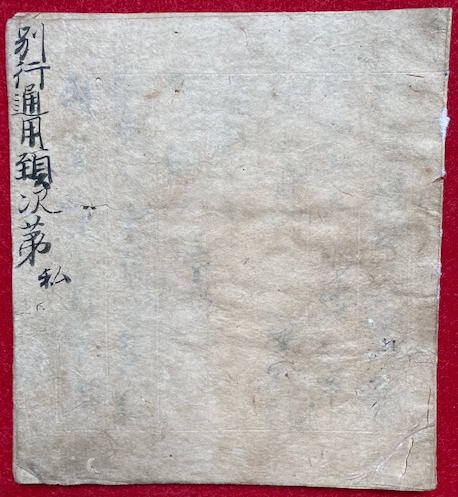 別行通用頸次第
私